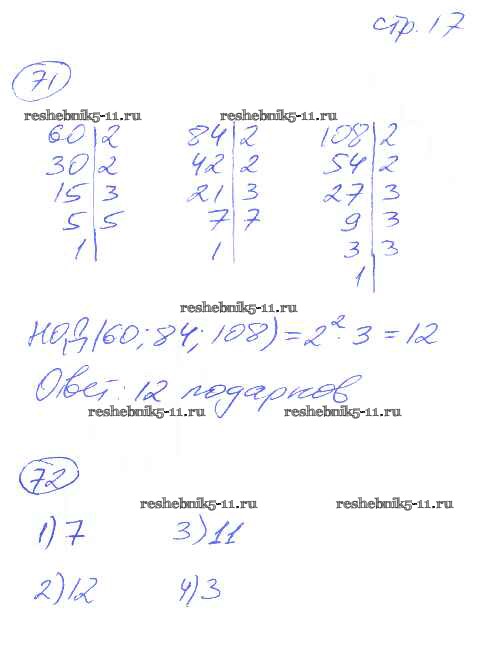 стр. 17
71
reshebnik5-11.ru reshebnik5-11.ru
60|2 84|2 108|2
30|2 42|2 54|2
15|3 21|3 27|3
5|5 7|7 9|3
1| 1| 3|3
1|
reshebnik5-11.ru
НОД(60; 84; 108) = 2²·3 = 12
Ответ: 12 подарков
reshebnik5-11.ru reshebnik5-11.ru
72
reshebnik5-11.ru reshebnik5-11.ru
1) 7 3) 11
2) 12 4) 3